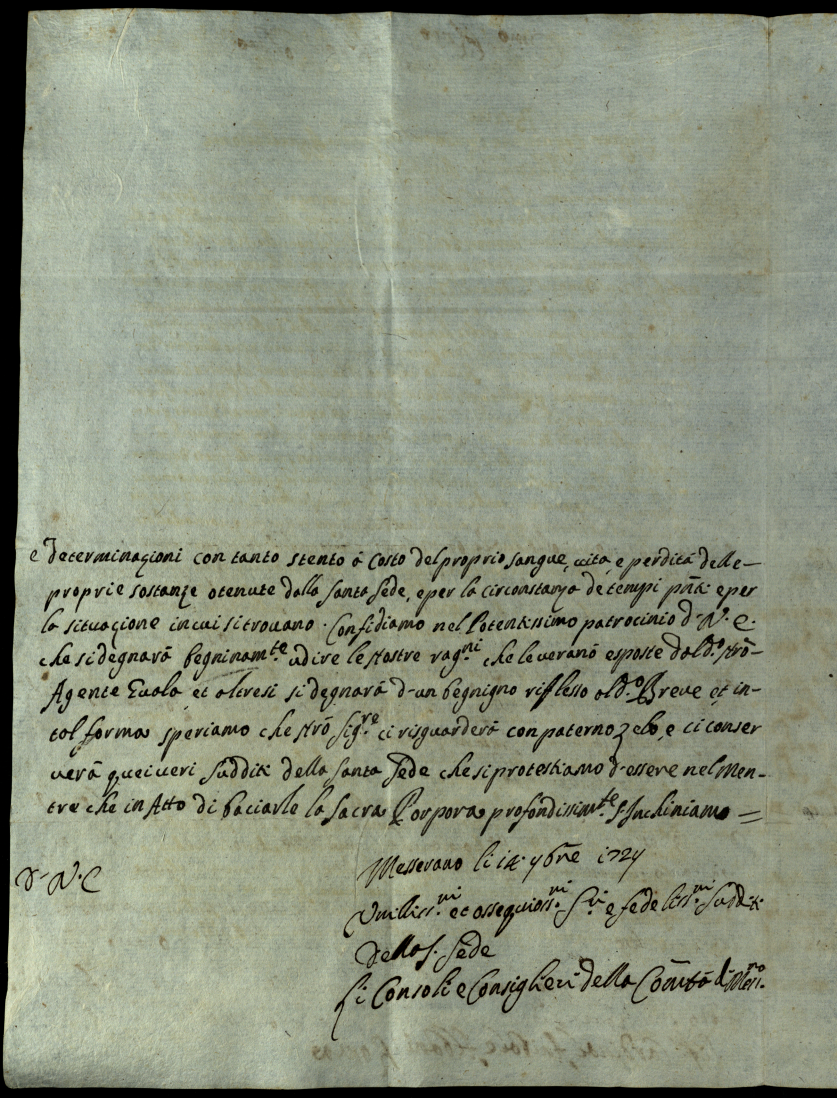 e determinazioni con tanto stento à costo del proprio sangue, vita, e perdita delle
proprie sostanze otenute dalla Santa Sede, e per la circonstanza de tempi pñti e per
la situazione in cui si trovano. Confidiamo nel Potentissimo patrocinio d. V. E.
che si degnarà begninam.te udire le nostre rag.ni che le veranõ esposte dal d.o nrõ
Agente Evola et altresi si degnarà d'un begnigno riflesso al d.o Breve et in
tal forma speriamo che nrõ Sig.re ci risguarderà con paterno zelo, e ci conser
verà quei veri sudditi della Santa Sede che si protestiamo d'essere nel Men-
tre che in Atto di baciarle la Sacra Porpora profondissim.te s'Inchiniamo =
Messerano li 14 7bre 1724
D. V. E
Umiliss.mi et ossequioss.mi S.ri e fedeliss.mi Sudditi
della S. Sede
Li Consoli e Consiglieri della Comtà di Mess.no